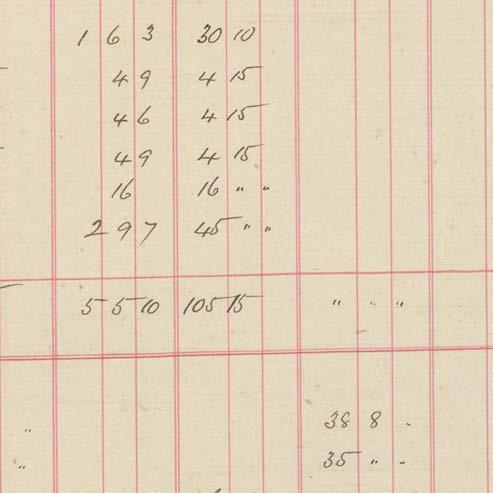 1 6 3 30 10
4 9 4 15
4 6 4 15
4 9 4 15
16 16 " "
2 9 7 45 " "
5 5 10 105 15 " " "
" 38 8 .
" 35 " -